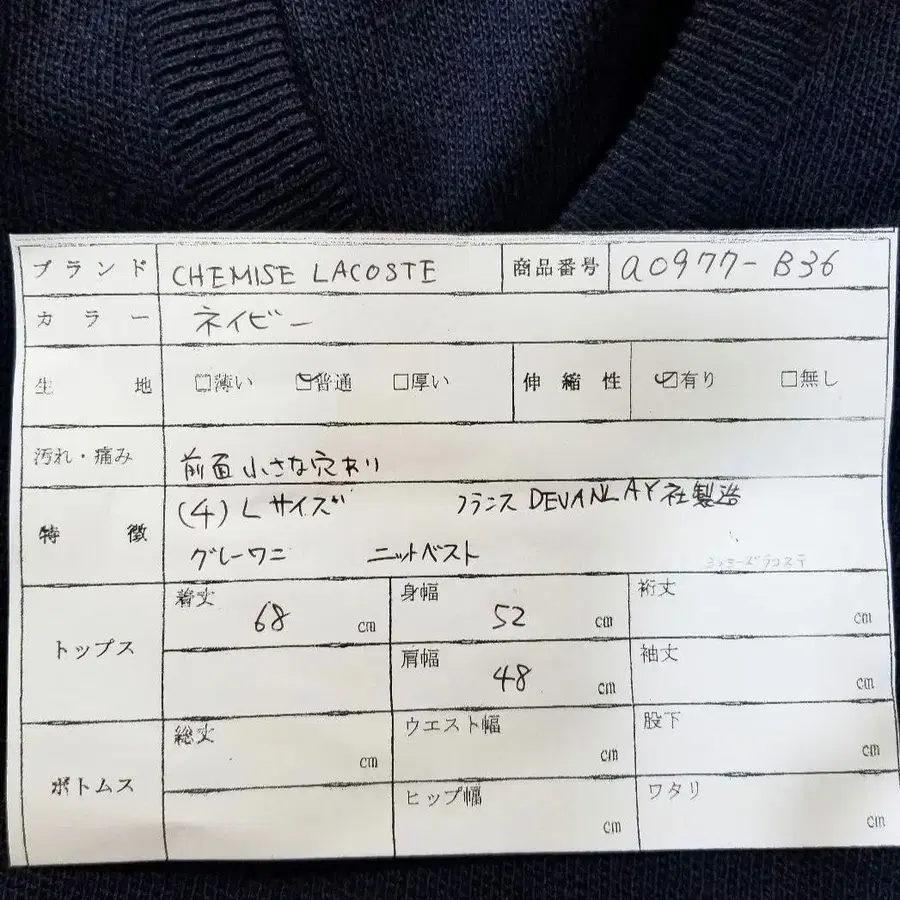 ブランド CHEMISE LACOSTE 商品番号 a0977-B36
カラー ネイビー
生地 □薄い ☑普通 □厚い 伸縮性 ☑有り □無し
汚れ・痛み 前面小さな穴あり
特徴 (4)Lサイズ フランスDEVANLAY社製造
グレーワニ ニットベスト
トップス 着丈 68 cm 身幅 52 cm 裄丈 cm
肩幅 48 cm 袖丈 cm
ボトムス 総丈 cm ウエスト幅 cm 股下 cm
ヒップ幅 cm ワタリ cm